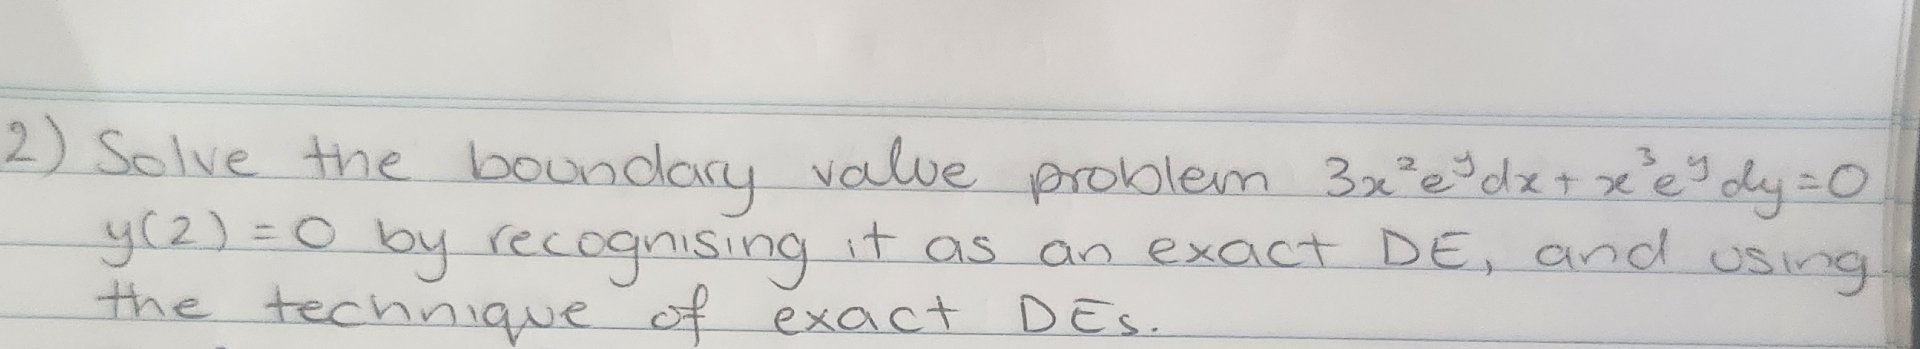 2) Solve the boundary value problem 3x²eʸdx + x³eʸdy = 0
y(2) = 0 by recognising it as an exact DE, and using
the technique of exact DEs.